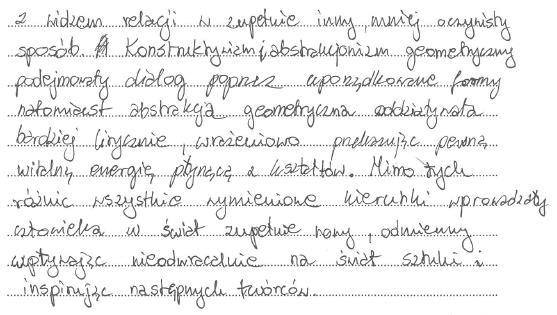 z widzem relacji w zupełnie inny, mniej oczywisty
sposób. Konstruktywizm i abstrakcjonizm geometryczny
podejmowały dialog poprzez uporządkowane formy
natomiast abstrakcja geometryczna oddziaływała
bardziej lirycznie, wrażeniowo przekazując pewną
witalną energię płynącą z kształtów. Mimo tych
różnic wszystkie wymienione kierunki wprowadzały
człowieka w świat zupełnie nowy, odmienny
wpływając nieodwracalnie na świat sztuki i
inspirując następnych twórców.